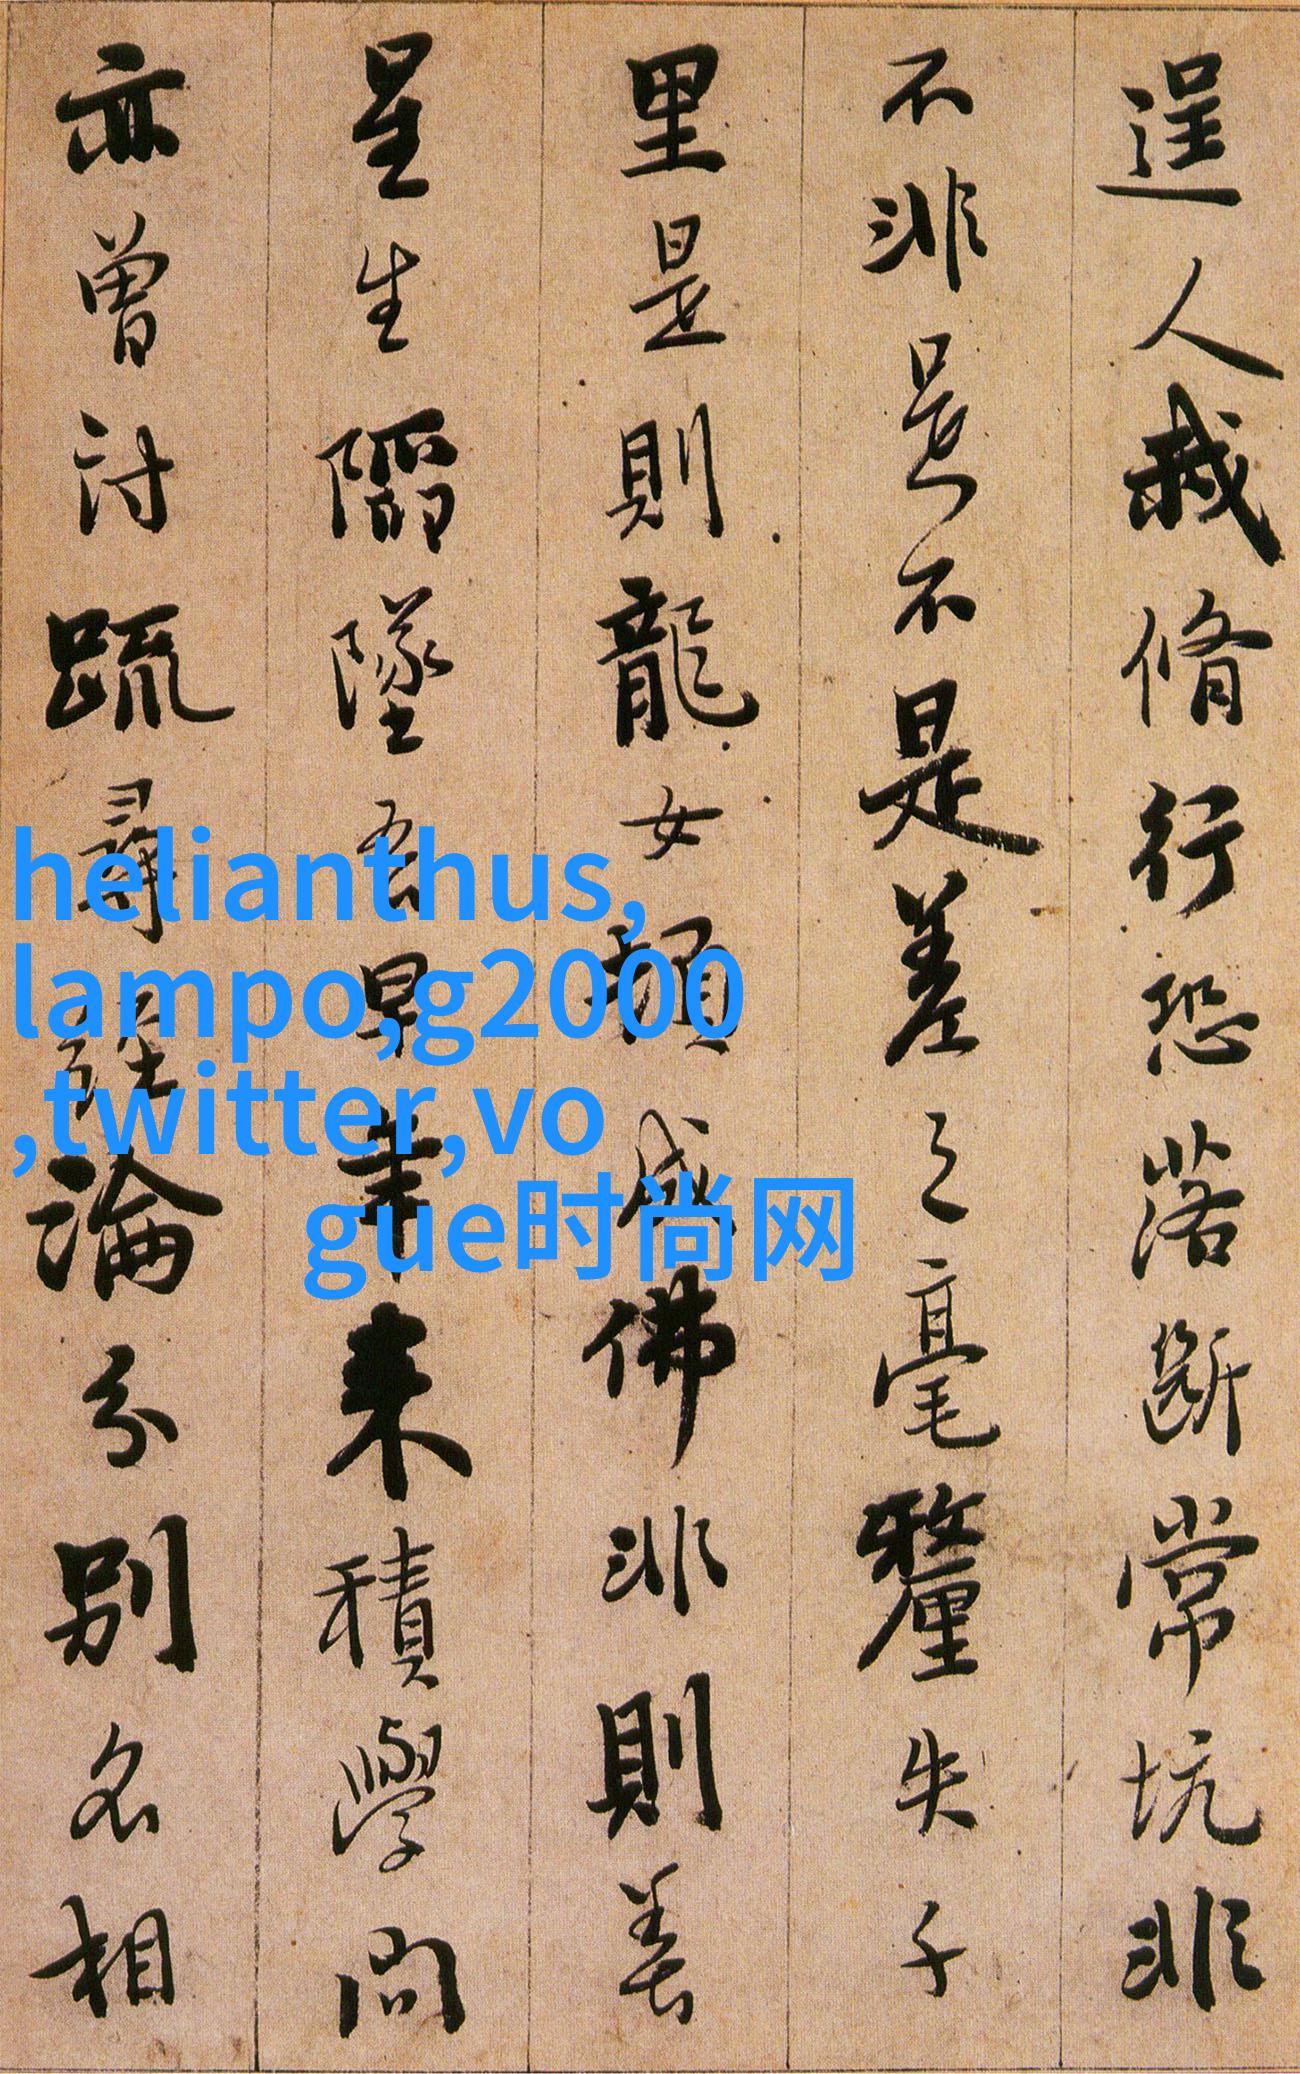 逞人我脩行恐落斷常坑非
不非是不是差之毫釐失千
里是則龍女頓成佛非則善
星生陷墜吾早年来積學問
亦曾討䟽尋經論分別名相
helianthus,
lampo,g2000
,twitter,vo
gue时尚网